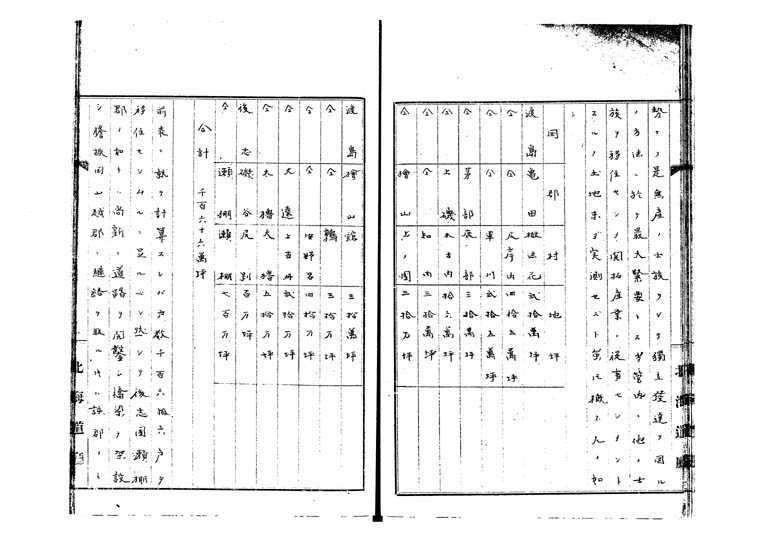 勢ヲ是無産ノ士族ヲシテ獨立發達ヲ図ル
ノ方法ニ於テ最大緊要トス予管内ヘ他ノ士
族ヲ移住セシメ開拓産業ニ従事セシメント
スルノ土地未ダ実測セズト雖モ概ネ凡ソ如
シ
国 郡 村 地坪
渡島 亀田 拾萬坪
仝 仝 尻岸内 四拾五萬坪
仝 仝 軍川 弐拾五萬坪
仝 茅部 三拾萬坪
仝 上磯 木古内 拾六萬坪
仝 仝 知内 三拾萬坪
仝 檜山 上ノ国 三拾万坪
渡島 檜山 三拾萬坪
仝 仝 鶉 三拾万坪
仝 仝 四拾万坪
仝 久遠 上古丹 弐拾万坪
仝 太櫓 太櫓 五拾万坪
後志 磯谷 尻別 百万坪
仝 瀬棚 瀬棚 七百万坪
合計 千百六十六萬坪
前表ニ就テ計算スレバ戸数千百六拾六戸ヲ
移住セシムルニ足ルベシ然シテ後志国瀬棚
郡ノ如キハ尚新ニ道路ヲ開鑿シ橋梁ヲ架設
シ膽振国山越郡ニ連絡ヲ取ル時ハ該郡ノミ
北海道庁
北海道庁